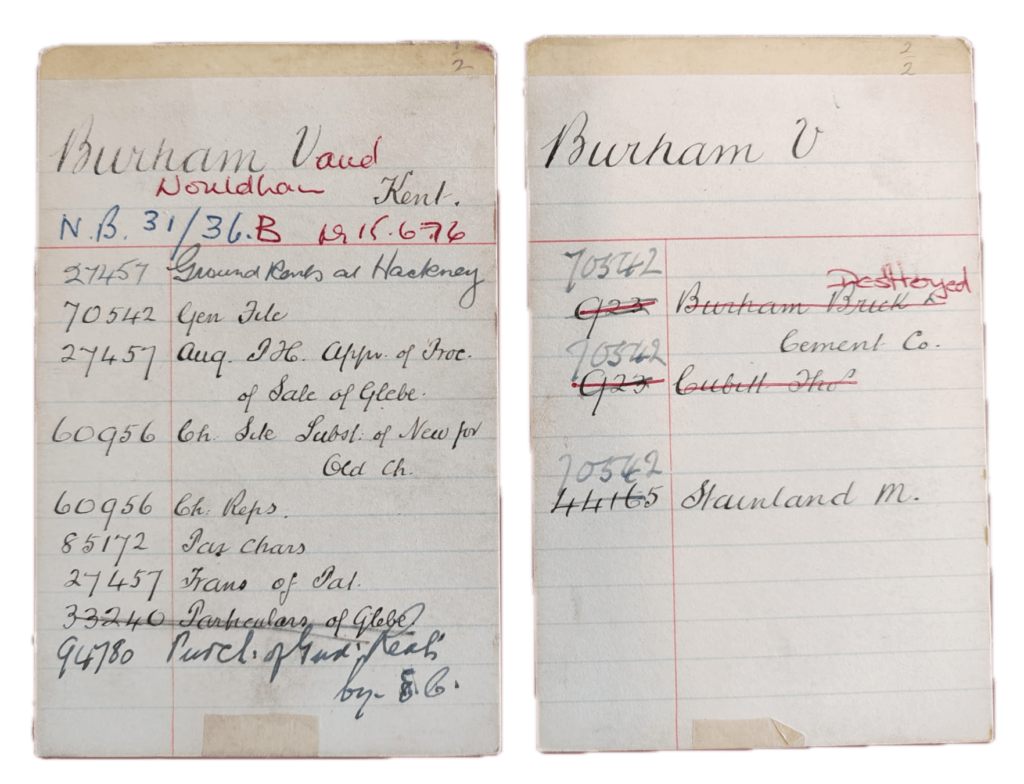 1/2
Burham V and
Wouldham Kent.
N.B. 31/36.B 15.6.76
27457 Ground Rents at Hackney
70542 Gen File
27457 Aug. P.H. Appr. of Proc.
of Sale of Glebe.
60956 Ch. Site Subst. of New for
Old Ch.
60956 Ch. Reps.
85172 Par Chars
27457 Trans of Pat.
33240 Particulars of Glebe
94780 Purch. of Gnd. Rents
by E.C.
2/2
Burham V
70542
Destroyed
923 Burham Brick &
70542 Cement Co.
923 Cubitt Thos
70542
44165 Stainland M.